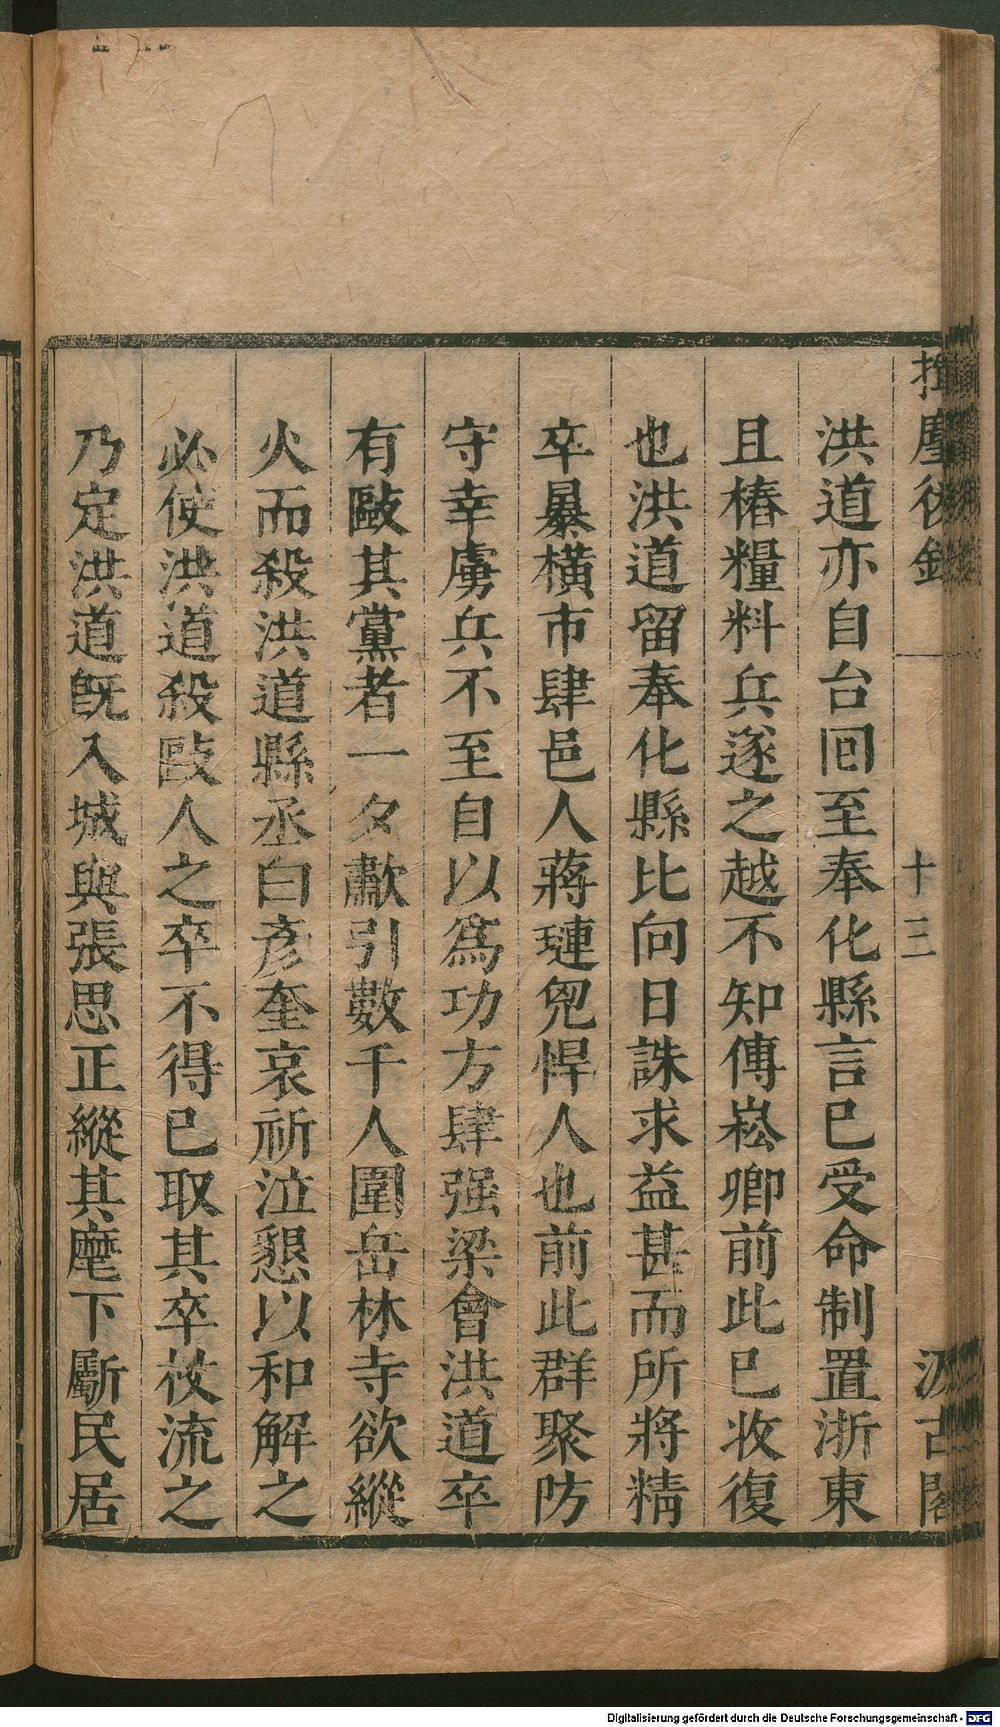 揮麈後錄
十三
汲古閣
洪道亦自台囘至奉化縣言已受命制置浙東
且樁糧料兵遂之越不知傅崧卿前此已收復
也洪道留奉化縣比向日誅求益甚而所將精
卒暴橫市肆邑人蔣璉兇悍人也前此群聚防
守幸虜兵不至自以爲功方肆强梁會洪道卒
有毆其黨者一夕歗引數千人圍岳林寺欲縱
火而殺洪道縣丞白彥奎哀祈泣懇以和解之
必使洪道殺毆人之卒不得已取其卒杖流之
乃定洪道旣入城與張思正縱其麾下斸民居
Digitalisierung gefördert durch die Deutsche Forschungsgemeinschaft - DFG